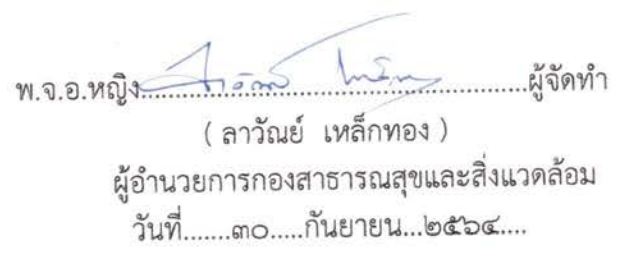 พ.จ.อ.หญิง..................................................ผู้จัดทำ
( ลาวัณย์ เหล็กทอง )
ผู้อำนวยการกองสาธารณสุขและสิ่งแวดล้อม
วันที่.......๓๐.....กันยายน...๒๕๖๔....